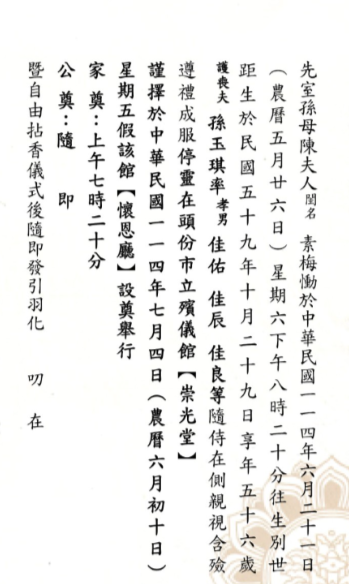 先室孫母陳夫人閨名　素梅慟於中華民國一一四年六月二十一日
（農曆五月廿六日）星期六下午八時二十分往生別世
距生於民國五十九年十月二十九日享年五十六歲
護喪夫　孫玉琪率孝男　佳佑　佳辰　佳良等隨侍在側親視含殮
遵禮成服停靈在頭份市立殯儀館【崇光堂】
謹擇於中華民國一一四年七月四日（農曆六月初十日）
星期五假該館【懷恩廳】設奠舉行
家奠：上午七時二十分
公奠：隨　即
暨自由拈香儀式後隨即發引羽化　　叨　在